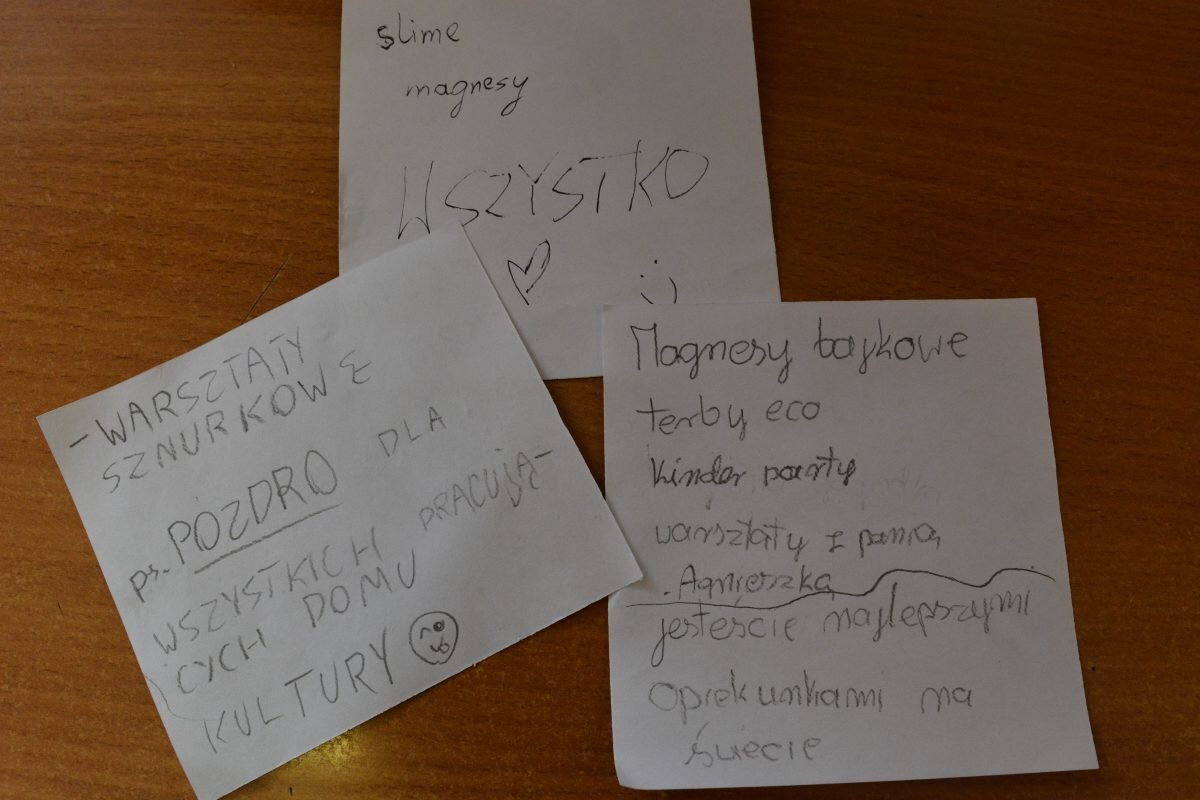 slime
magnesy
WSZYSTKO
- WARSZTATY
SZNURKOWE
ps. POZDRO DLA
WSZYSTKICH PRACUJĄ-
CYCH DOMU
KULTURY
Magnesy bajkowe
torby eco
kinder party
warsztaty z panią
Agnieszką
jesteście najlepszymi
Opiekunkami na
świecie